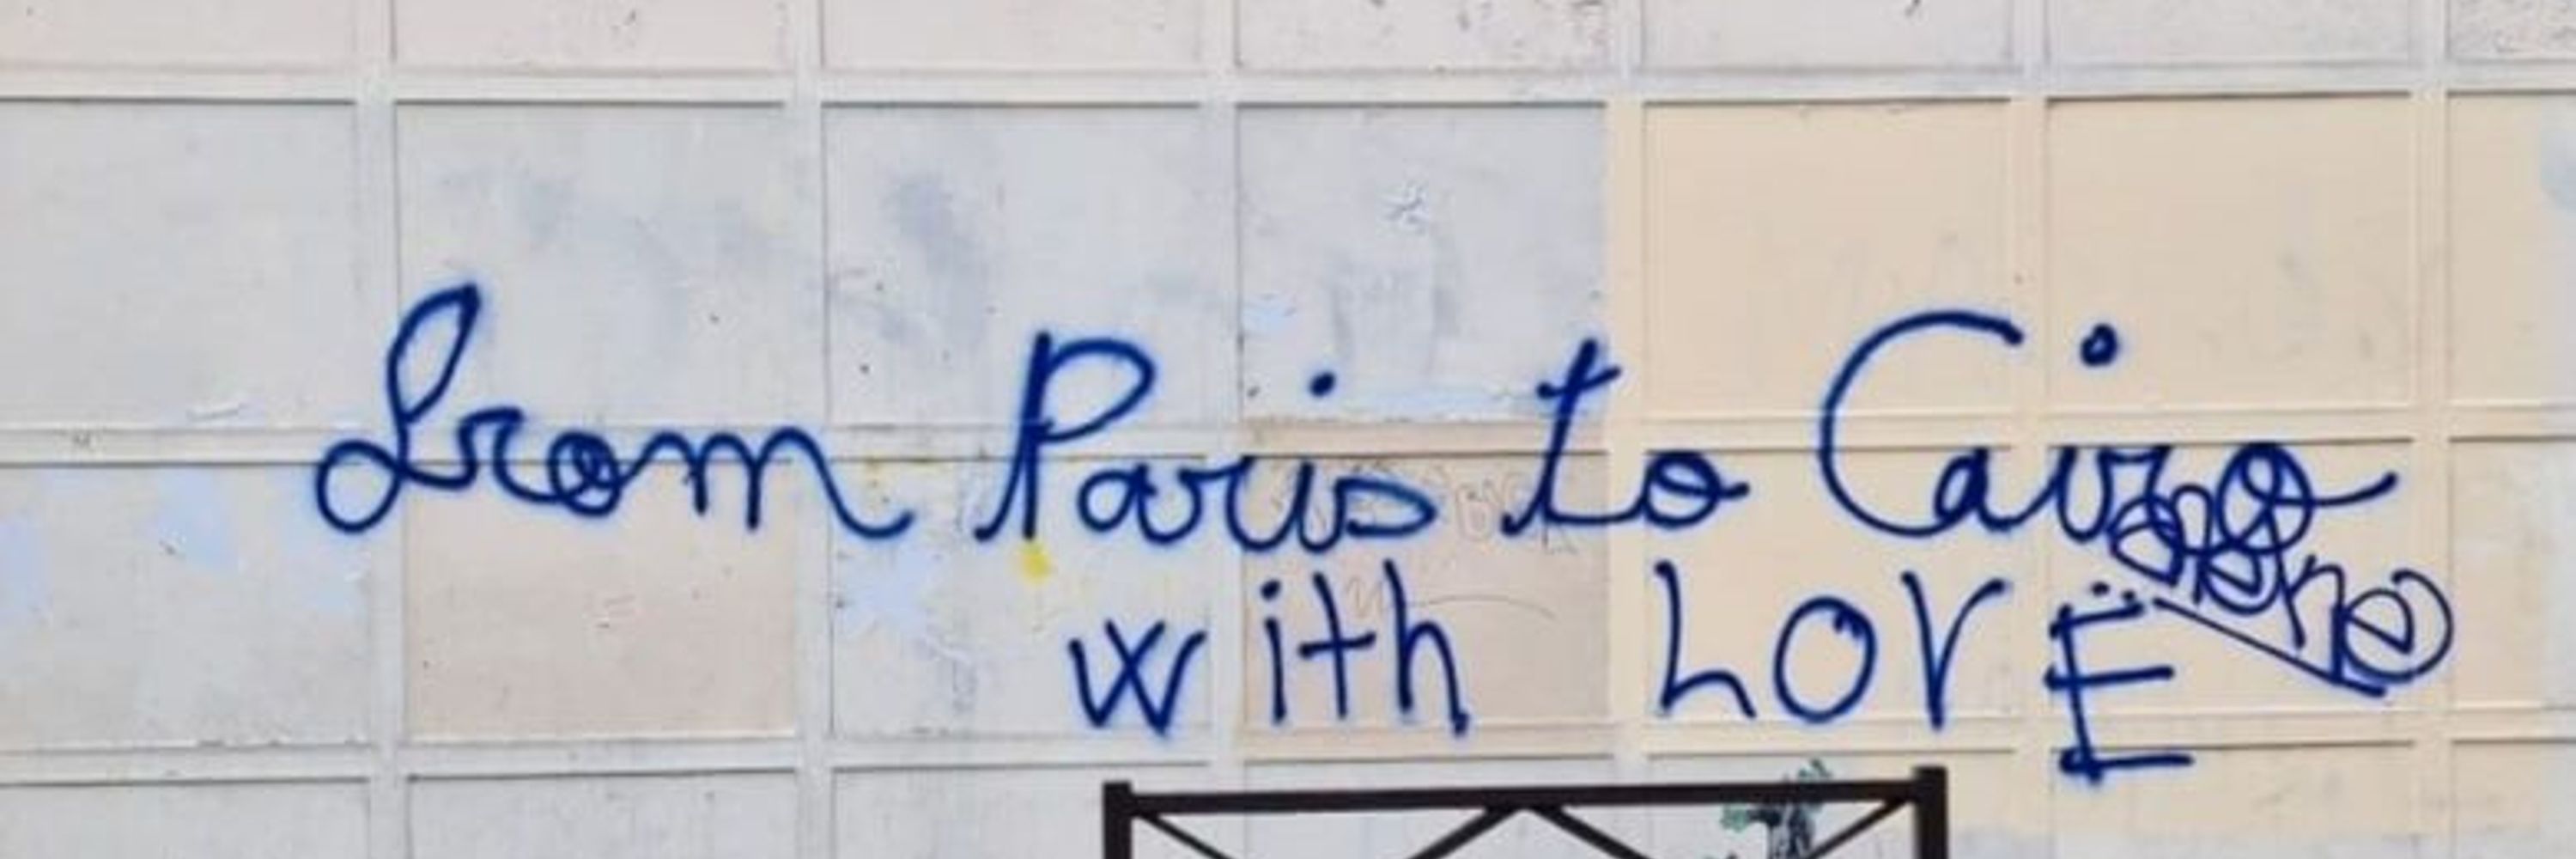 from Paris to Cairo
with LOVE